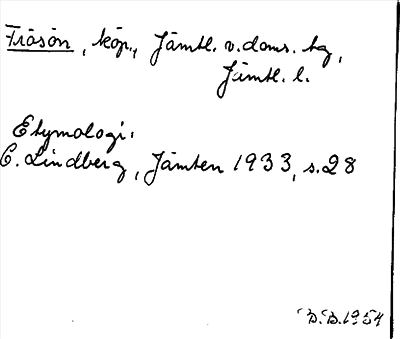 Frösön, köp., Jämtl. v. doms. hg,
Jämtl. l.
Etymologi.
C. Lindberg, Jämten 1933, s. 28
B.B. 1954